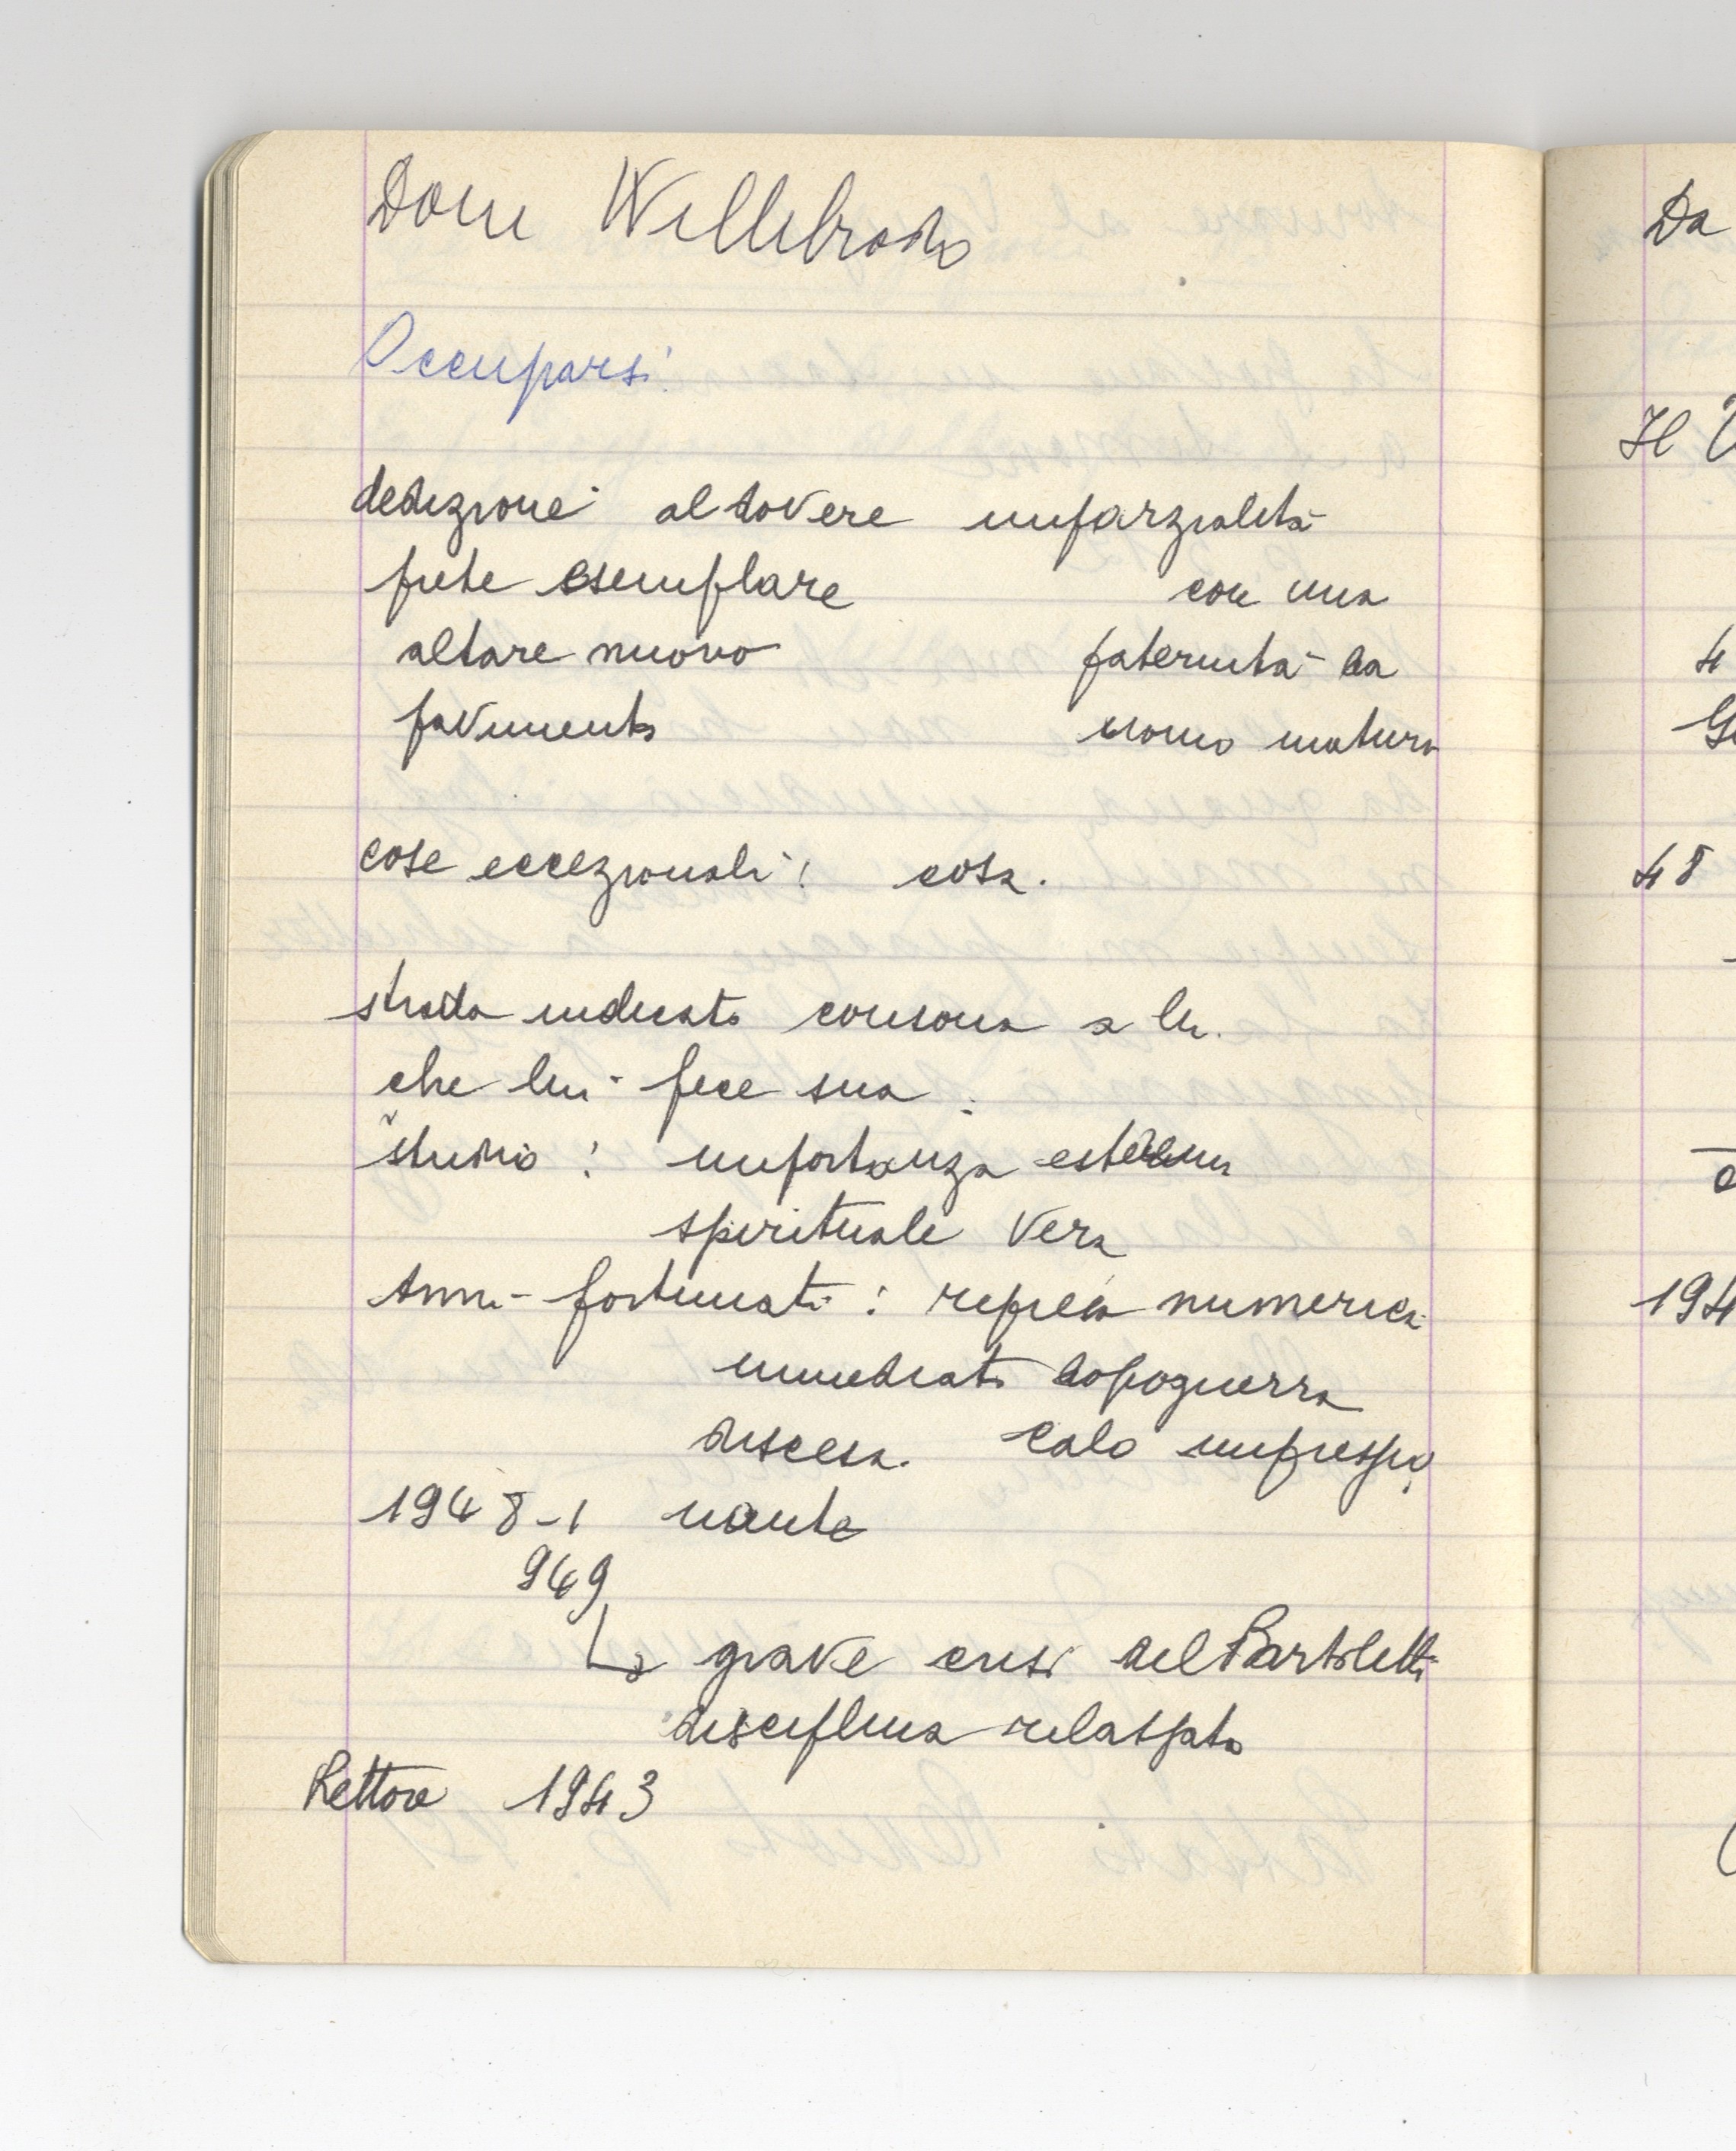 Dom Willibrordo
Occuparsi
dedizione al dovere imparzialità
prete esemplare con una
altare nuovo paternità da
pavimento uomo maturo
cose eccezionali: cosa.
strada indicata consona a lui
che lui fece sua.
studio: importanza
spirituale vera
Anni fortunati: ripresa numerica
immediato dopoguerra
discesa. calo impressio
1948-1 nante
949
↳ grave crisi del Bartoletti
disciplina rilassata
Rettore 1943
Da
Il
4
48
194